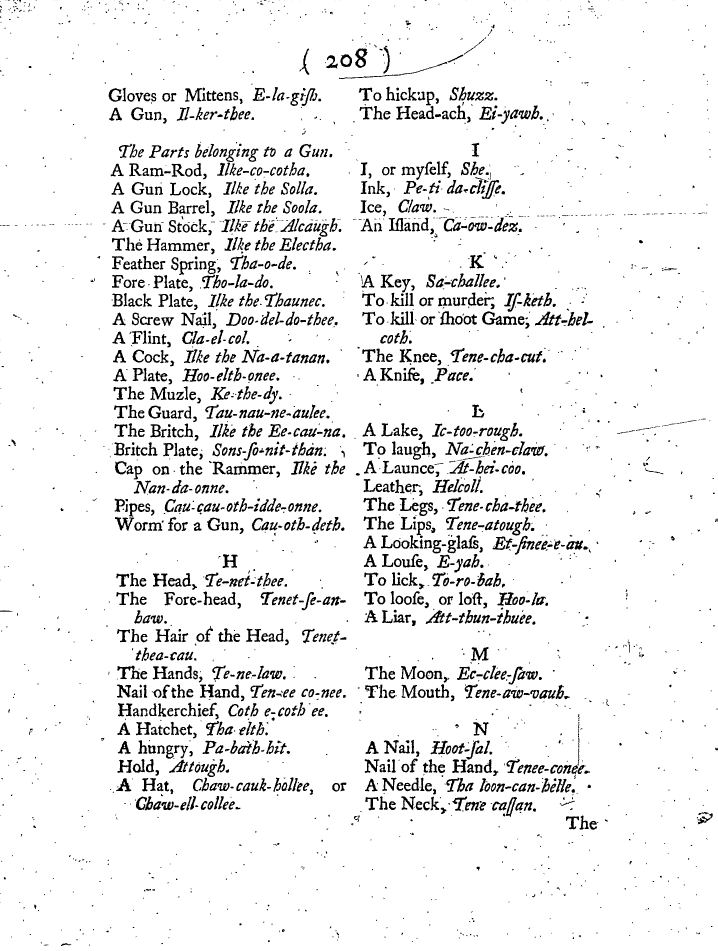 ( 208 )
Gloves or Mittens, E-la-giſh.
A Gun, Il-ker-thee.
The Parts belonging to a Gun.
A Ram-Rod, Ilke-co-cotha.
A Gun Lock, Ilke the Solla.
A Gun Barrel, Ilke the Soola.
A Gun Stock, Ilke the Alcaugh.
The Hammer, Ilke the Electha.
Feather Spring, Tha-o-de.
Fore Plate, Tho-la-do.
Black Plate, Ilke the Thaunec.
A Screw Nail, Doo-del-do-thee.
A Flint, Cla-el-col.
A Cock, Ilke the Na-a-tanan.
A Plate, Hoo-elth-onee.
The Muzle, Ke-the-dy.
The Guard, Tau-nau-ne-aulee.
The Britch, Ilke the Ee-cau-na.
Britch Plate, Sons-ſo-nit-than.
Cap on the Rammer, Ilke the
Nan-da-onne.
Pipes, Cau-cau-oth-idde-onne.
Worm for a Gun, Cau-oth-deth.
H
The Head, Te-net-thee.
The Fore-head, Tenet-ſe-an-
baw.
The Hair of the Head, Tenet-
thea-cau.
The Hands, Te-ne-law.
Nail of the Hand, Ten-ee co-nee.
Handkerchief, Coth e-coth ee.
A Hatchet, Tha elth.
A hungry, Pa-bath-hit.
Hold, Attough.
A Hat, Chaw-cauk-hollee, or
Chaw-ell-collee.
To hickup, Shuzz.
The Head-ach, Ei-yawh.
I
I, or myſelf, She.
Ink, Pe-ti da-cliſſe.
Ice, Claw.
An Iſland, Ca-ow-dez.
K
A Key, Sa-challee.
To kill or murder, Iſ-keth.
To kill or ſhoot Game, Att-hel-
coth.
The Knee, Tene-cha-cut.
A Knife, Pace.
L
A Lake, Ic-too-rough.
To laugh, Na-chen-claw.
A Launce, At-hei-coo.
Leather, Helcoll.
The Legs, Tene-cha-thee.
The Lips, Tene-atough.
A Looking-glaſs, Et-ſinee-e-au.
A Louſe, E-yah.
To lick, To-ro-bah.
To looſe, or loſt, Hoo-la.
A Liar, Att-thun-thuee.
M
The Moon, Ec-clee-ſaw.
The Mouth, Tene-aw-vauh.
N
A Nail, Hoot-ſal.
Nail of the Hand, Tenee-conee.
A Needle, Tha loon-can-helle.
The Neck, Tene caſſan.
The